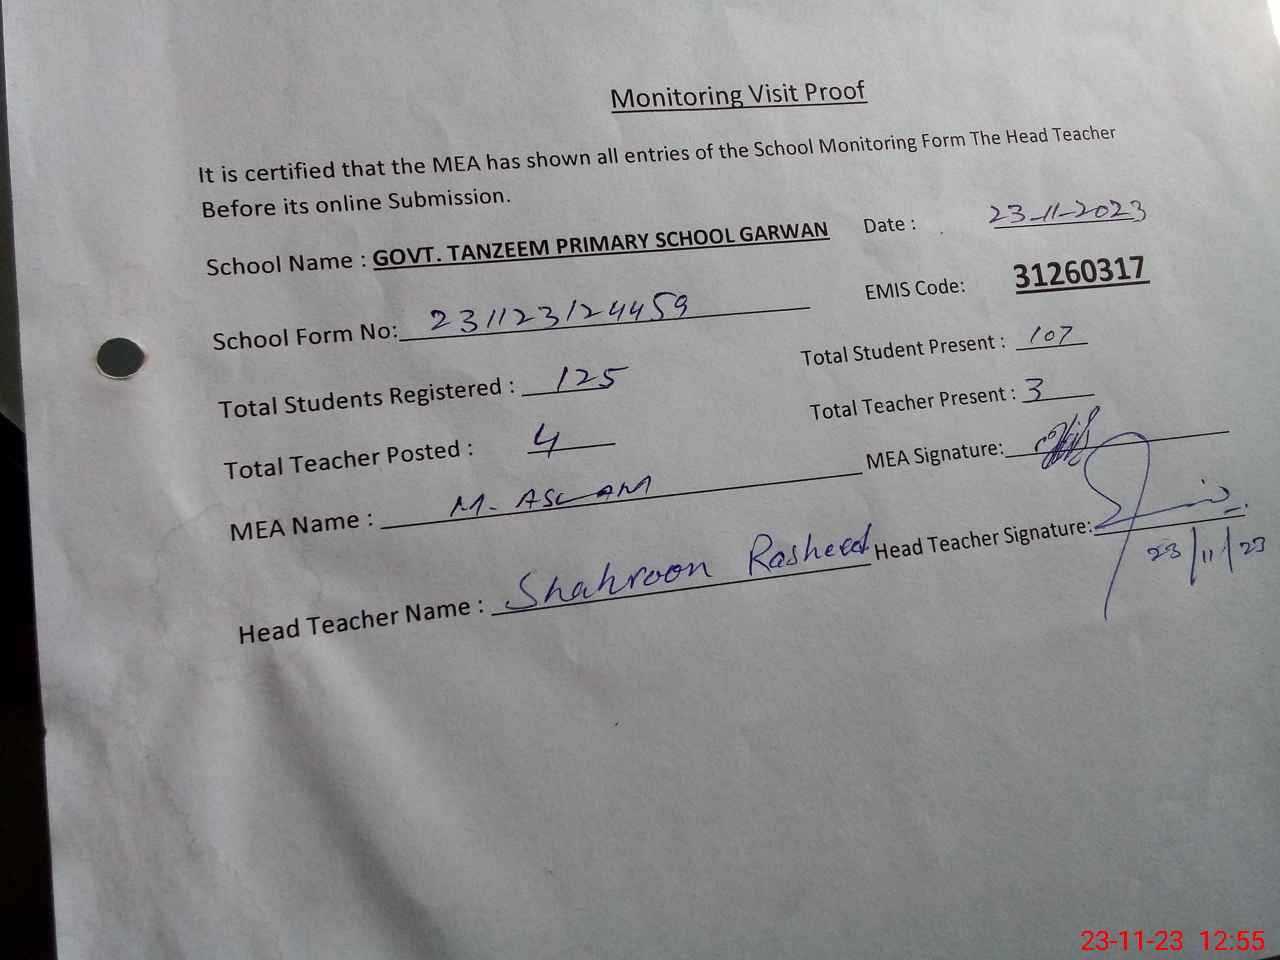 Monitoring Visit Proof
It is certified that the MEA has shown all entries of the School Monitoring Form The Head Teacher
Before its online Submission.
School Name : GOVT. TANZEEM PRIMARY SCHOOL GARWAN Date : 23-11-2023
School Form No: 231123124459 EMIS Code: 31260317
Total Students Registered : 125 Total Student Present : 107
Total Teacher Posted : 4 Total Teacher Present : 3
MEA Name : M. ASLAM MEA Signature:
Head Teacher Name : Shahroon Rasheed Head Teacher Signature:
23/11/23
23-11-23 12:55